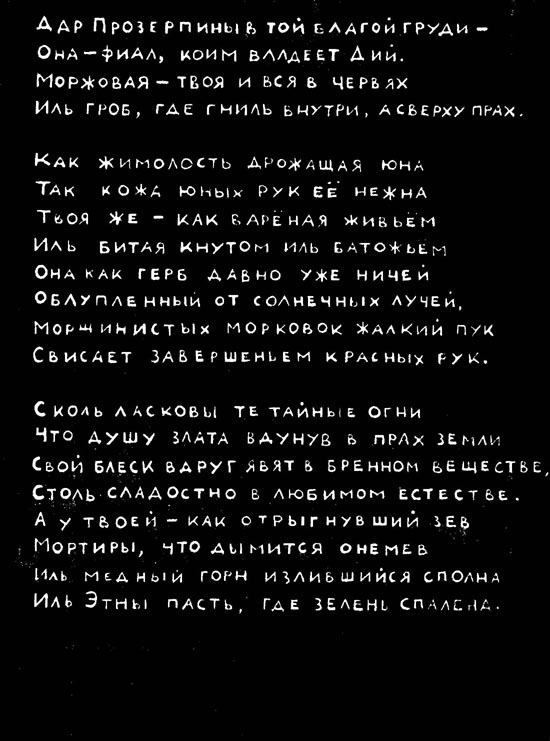 Дар Прозерпины в той благой груди –
Она – фиал, коим владеет Дий.
Моржовая – твоя и вся в червях
Иль гроб, где гниль внутри, а сверху прах.
Как жимолость дрожащая юна
Так кожа юных рук её нежна
Твоя же – как варёная живьём
Иль битая кнутом иль батожьём
Она как герб давно уже ничей
Облупленный от солнечных лучей,
Морщинистых морковок жалкий пук
Свисает завершеньем красных рук.
Сколь ласковы те тайные огни
Что душу злата вдунув в прах земли
Свой блеск вдруг явят в бренном веществе,
Столь сладостно в любимом естестве.
А у твоей – как отрыгнувший зев
Мортиры, что дымится онемев
Иль медный горн излившийся сполна
Иль Этны пасть, где зелень спалена.